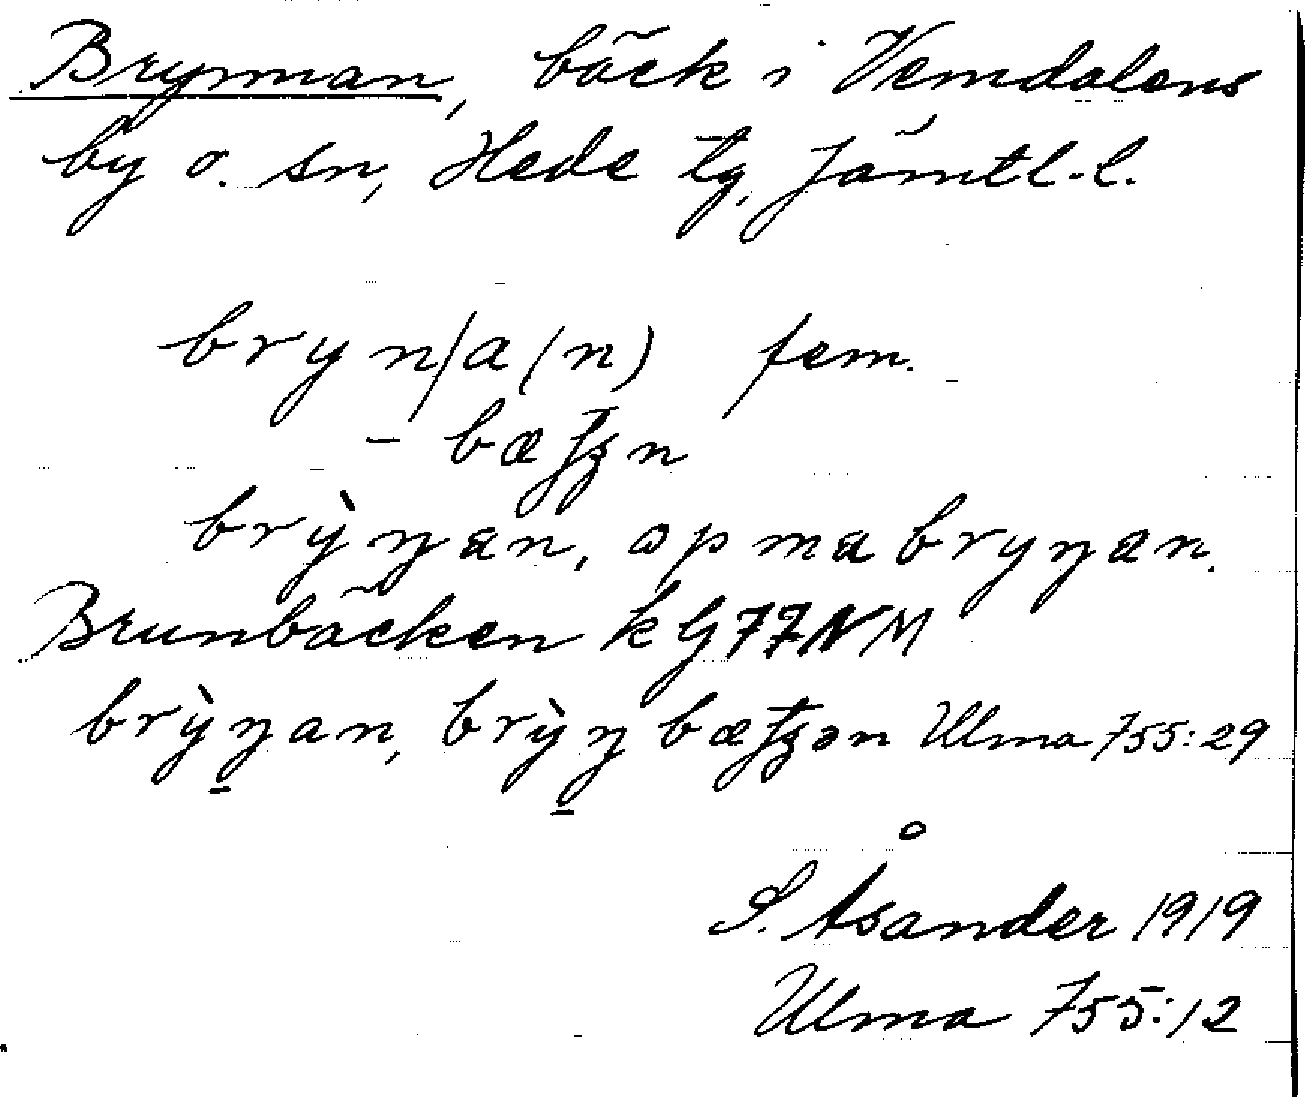 Brynnan, bäck i Vemdalens
by o. sn, Hede tg, Jämtl. l.
bryn/a(n) fem.
- bæʈʂn
brỳŋan, opma bryŋan.
Brunbäcken k G77NM
brỳŋan, brỳŋbæʈʂən Ulma 755:29
S. Åsander 1919
Ulma 755:12